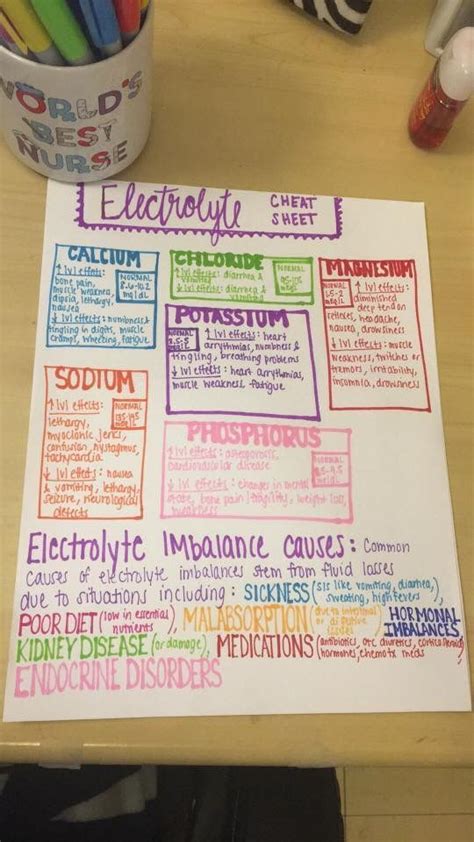 WORLD'S
BEST
NURSE
Electrolyte
CHEAT
SHEET
CALCIUM
↑ lvl effects:
bone pain,
muscle weakness,
dipsia, lethargy,
nausea
↓ lvl effects: numbness &
tingling in digits, muscle
cramps, wheezing, fatigue
NORMAL
8.6-10.2
mg/dL
CHLORIDE
↑ lvl effects: diarrhea &
vomiting
↓ lvl effects: diarrhea &
vomiting
NORMAL
MAGNESIUM
↑ lvl effects:
diminished
deep tendon
reflexes, headache,
nausea, drowsiness
↓ lvl effects: muscle
weakness, twitches or
tremors, irritability,
insomnia, drowsiness
NORMAL
1.5-2
POTASSIUM
NORMAL
3.5-5
↑ lvl effects: heart
arrythmias, numbness &
tingling, breathing problems
↓ lvl effects: heart arrythmias,
muscle weakness, fatigue
SODIUM
↑ lvl effects:
lethargy,
myoclonic jerks,
confusion, nystagmus,
tachycardia
↓ lvl effects: nausea
& vomiting, lethargy,
seizure, neurological
defects
NORMAL
135-145
PHOSPHORUS
↑ lvl effects: osteoporosis,
cardiovascular disease
↓ lvl effects: changes in mental
state, bone pain/fragility, weight loss,
weakness
NORMAL
2.5-4.5
Electrolyte Imbalance Causes: Common
causes of electrolyte imbalances stem from fluid losses
due to situations including: SICKNESS (s/s like vomiting, diarrhea,
sweating, high fevers)
POOR DIET (low in essential
nutrients), MALABSORPTION (due to intestinal
or digestive
issues), HORMONAL
IMBALANCES,
KIDNEY DISEASE (or damage), MEDICATIONS (antibiotics, OTC diuretics, corticosteroid
hormones, chemo tx meds
ENDOCRINE DISORDERS